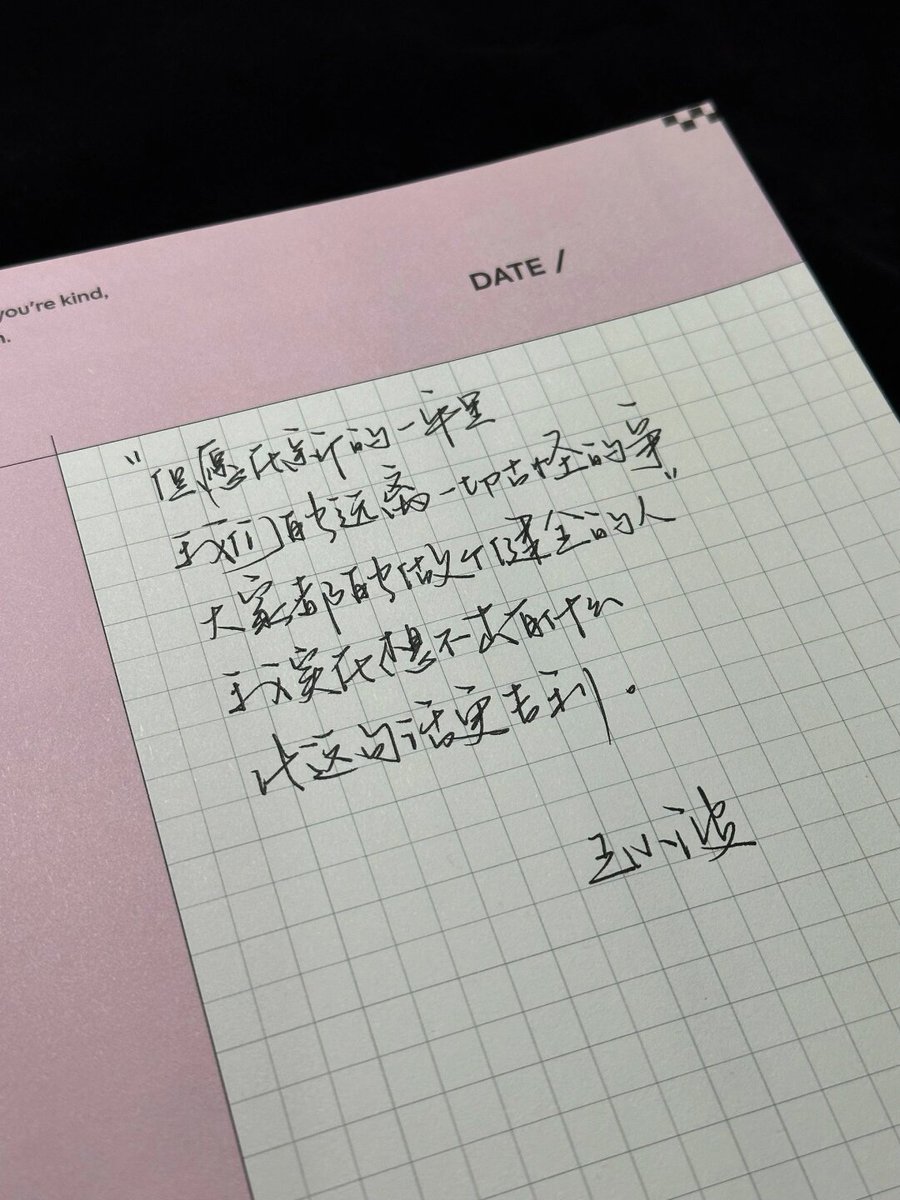 you're kind,
DATE /
"但愿在新的一年里
我们能远离一切古怪的事"
大家都能做个健全的人
我实在想不出有什么
比这句话更吉利.
王小波